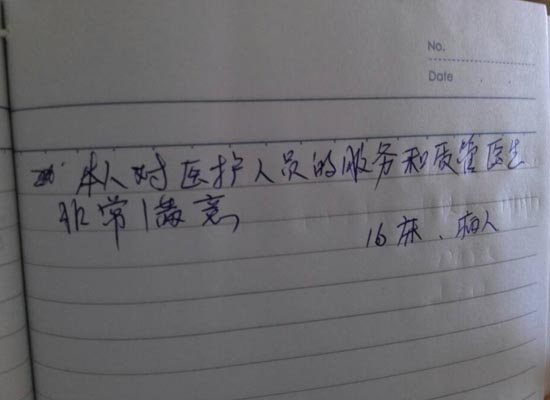 No.
Date
本人对医护人员的服务和质管医生
非常满意
16床、病人